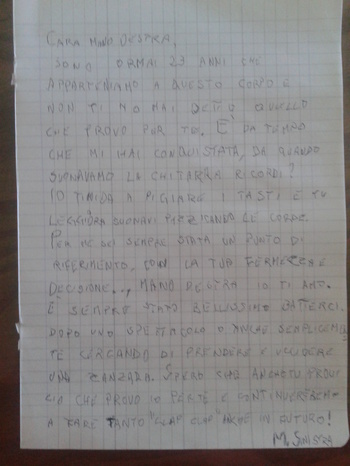 CARA MANO DESTRA,
SONO ORMAI 23 ANNI CHE
APPARTENIAMO A QUESTO CORPO E
NON TI HO MAI DETTO QUELLO
CHE PROVO PER TE. È DA TEMPO
CHE MI HAI CONQUISTATA, DA QUANDO
SUONAVAMO LA CHITARRA RICORDI?
IO TIMIDA A PIGIARE I TASTI E TU
LEGGIADRA SUONAVI PIZZICANDO LE CORDE.
PER ME SEI SEMPRE STATA UN PUNTO DI
RIFERIMENTO, CON LA TUA FERMEZZA E
DECISIONE..., MANO DESTRA IO TI AMO.
È SEMPRE STATO BELLISSIMO BATTERCI
DOPO UNO SPETTACOLO O ANCHE SEMPLICEMEN
TE CERCANDO DI PRENDERE E UCCIDERE
UNA ZANZARA. SPERO CHE ANCHE TU PROVI
CIÒ CHE PROVO IO PER TE E CONTINUEREMO
A FARE TANTO "CLAP CLAP" ANCHE IN FUTURO!
M. SINISTRA